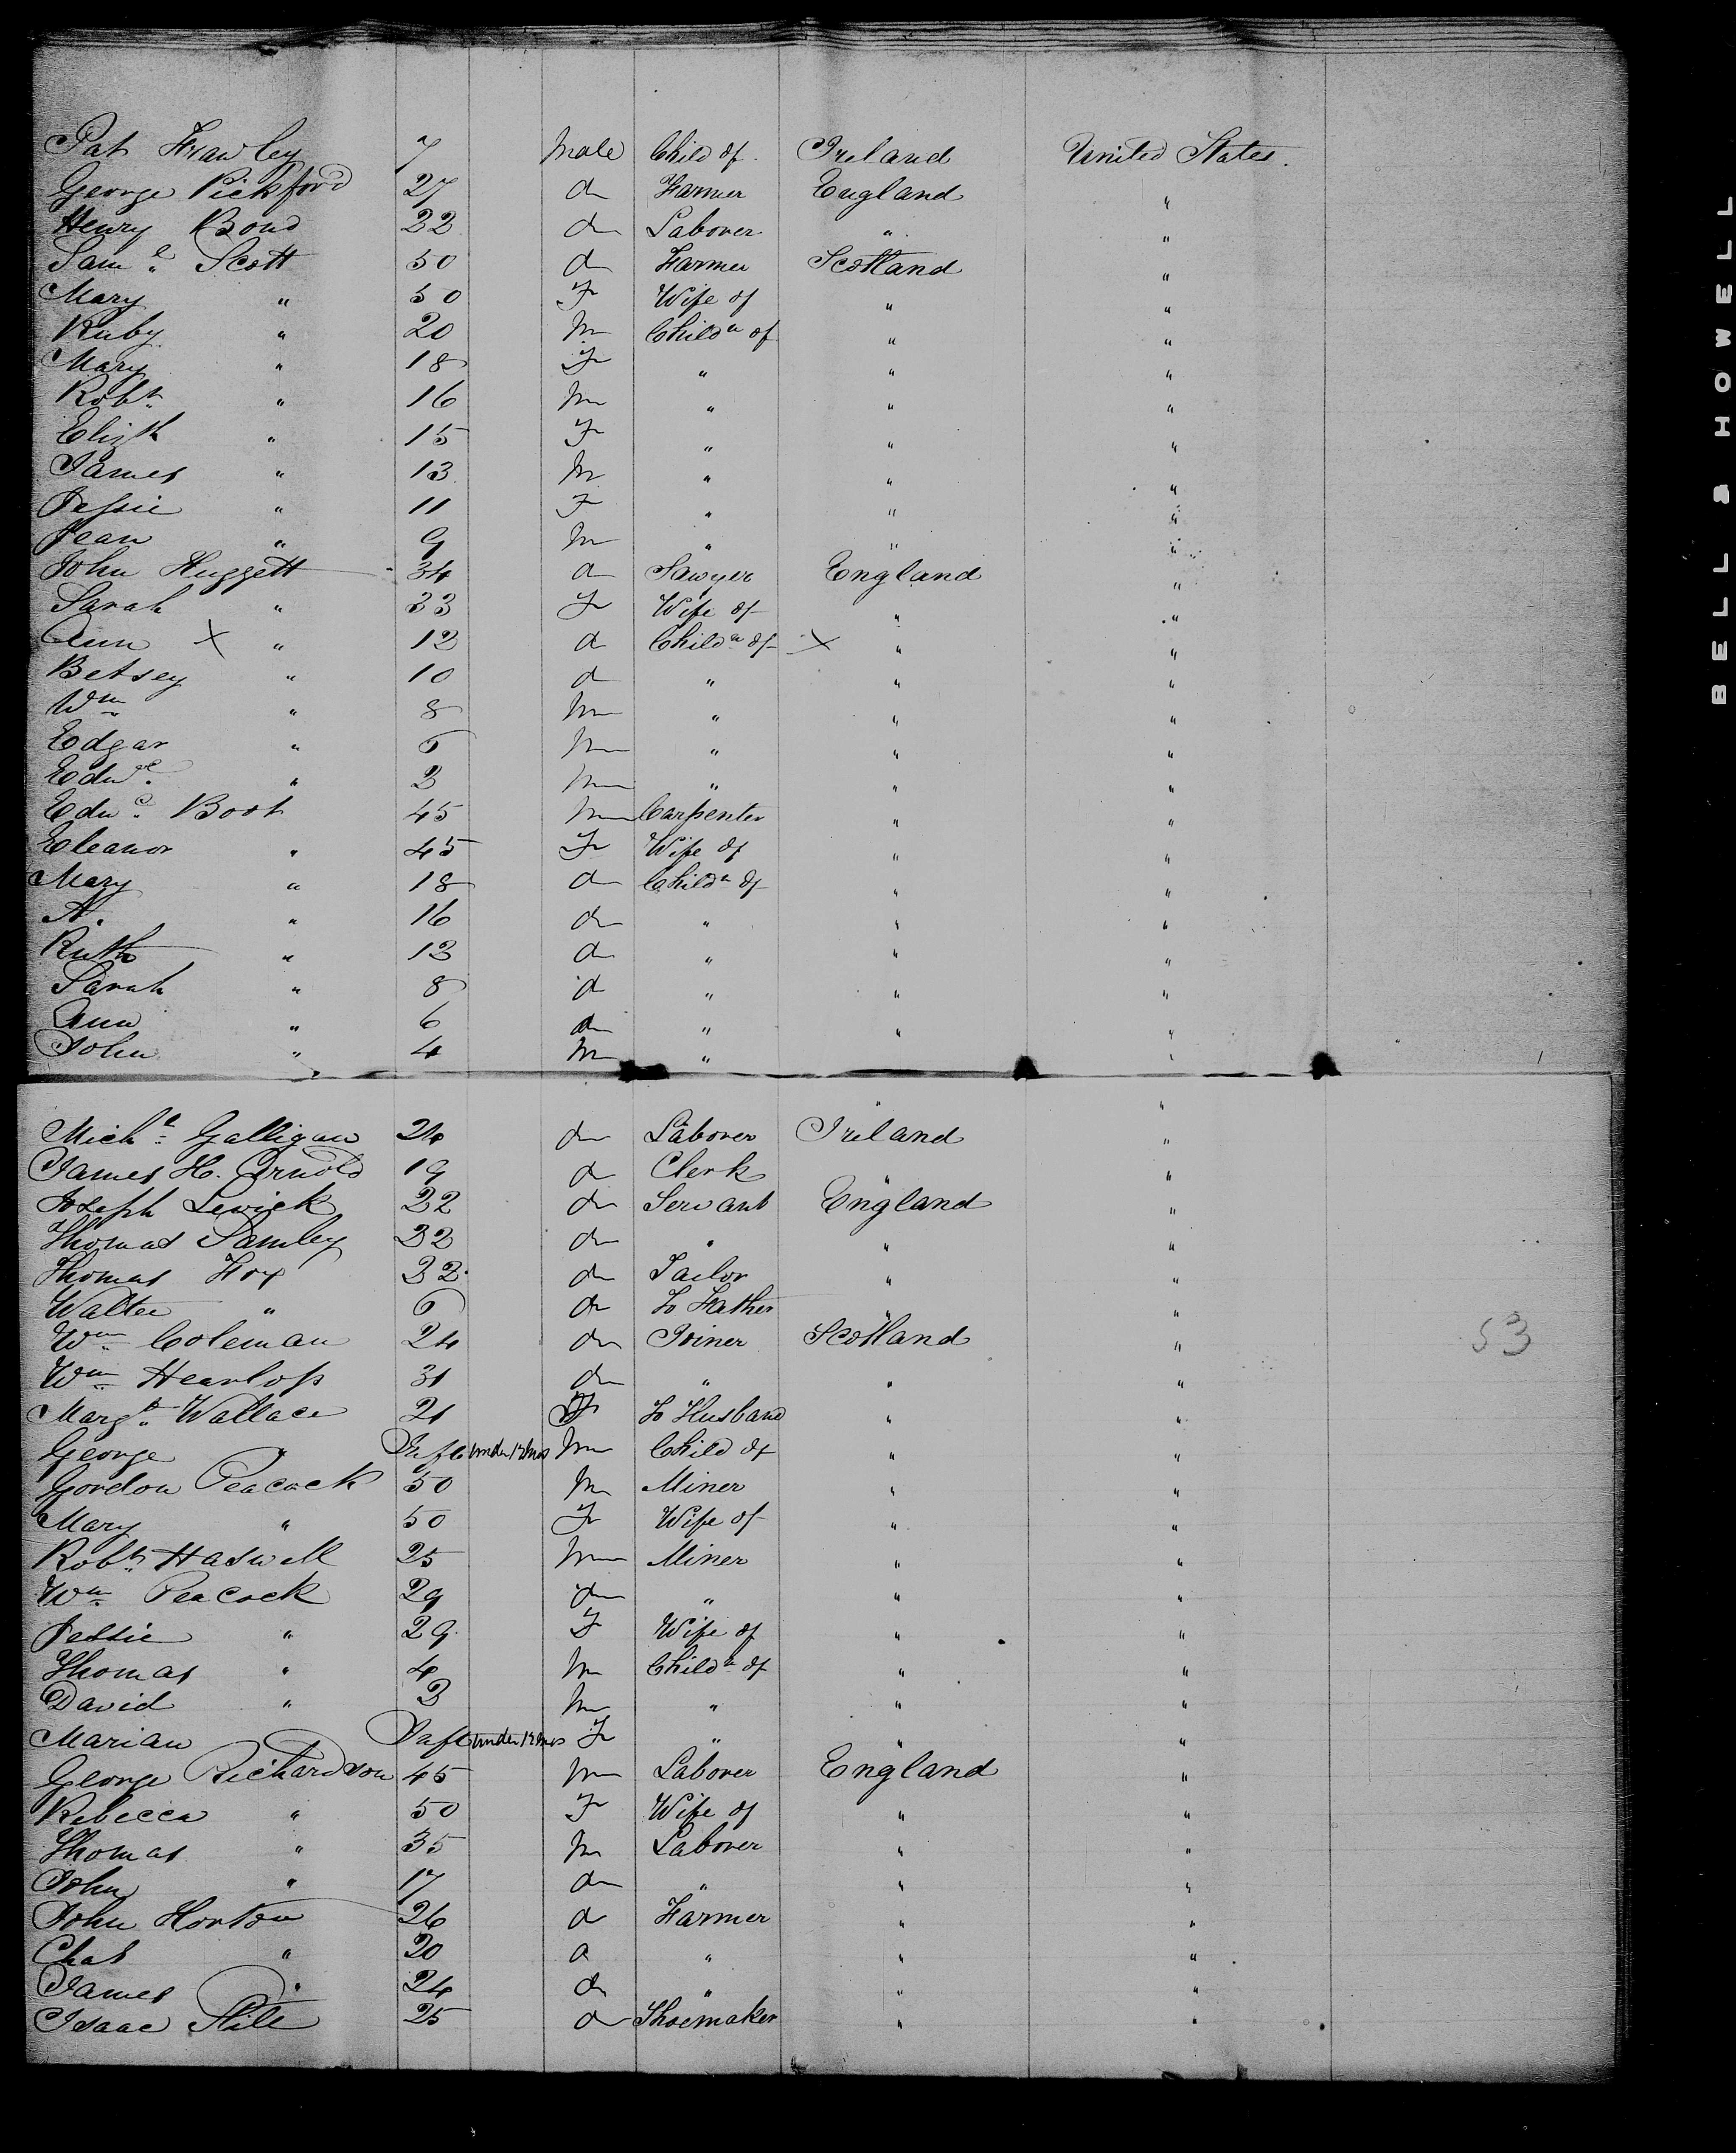 Pat Frawley 7 Male Child of Ireland United States.
George Pickford 27 do Farmer England "
Henry Bond 22 do Laborer " "
Saml Scott 50 do Farmer Scotland "
Mary " 50 F Wife of " "
Ruby " 20 M Childn of " "
Mary " 18 F " " "
Robt " 16 M " " "
Elizth " 15 F " " "
James " 13 M " " "
Jessie " 11 F " " "
Jean " 9 M " " "
John Huggett 34 do Sawyer England "
Sarah " 33 F Wife of " "
Ann X " 12 do Childn of X " "
Betsey " 10 do " " "
Wm " 8 M " " "
Edgar " 5 M " " "
Edwd " 3 M " " "
Edwd Boot 45 M Carpenter " "
Eleanor " 45 F Wife of " "
Mary " 18 do Childn of " "
A. " 16 do " " "
Ruth " 13 do " " "
Sarah " 8 do " " "
Ann " 6 do " " "
John " 4 M " " "
Michl Galligan 24 do Laborer Ireland "
James H. Arnold 19 do Clerk " "
Joseph Lewick 22 do Servant England "
Thomas 32 do " " "
Thomas Fox 32 do Tailor " "
Walter " 6 do To Father " "
Wm Coleman 24 do Joiner Scotland "
Wm Hearlops 31 do " " "
Margt Wallace 21 F To Husband " "
George " Inft under 12 mos M Child of " "
Gordon Peacock 50 M Miner " "
Mary " 50 F Wife of " "
Robt Haswell 25 M Miner " "
Wm Peacock 29 do " " "
Jessie " 29 F Wife of " "
Thomas " 4 M Childn of " "
David " 3 M " " "
Marian Inft under 12 mos F " " "
George Richardson 45 M Laborer England "
Rebecca " 50 F Wife of " "
Thomas " 35 M Laborer " "
John " 17 do " " "
John Horton 26 do Farmer " "
Chas " 20 do " " "
James " 24 do " " "
Isaac 25 do Shoemaker " "
53
BELL & HOWELL